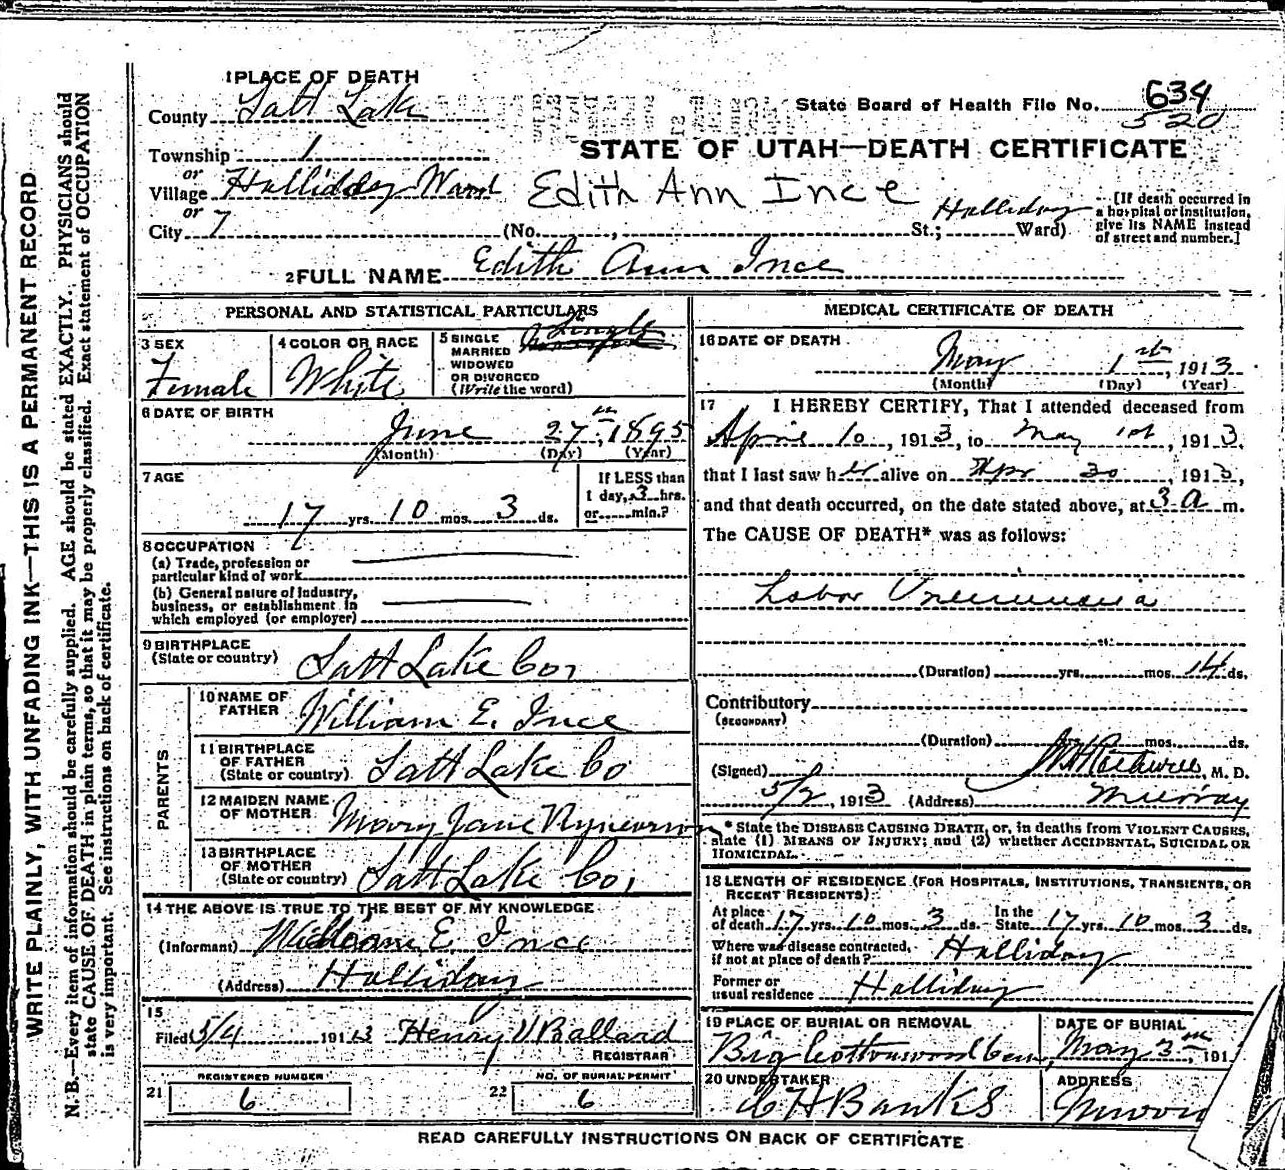 1 PLACE OF DEATH
County Salt Lake
State Board of Health File No. 634
520
Township 1
STATE OF UTAH—DEATH CERTIFICATE
or
Village Halliday Ward
Edith Ann Ince
or
City 7 (No. , Halliday St.; Ward)
[If death occurred in
a hospital or institution,
give its NAME instead
of street and number.]
2 FULL NAME Edith Ann Ince
PERSONAL AND STATISTICAL PARTICULARS
3 SEX
Female
4 COLOR OR RACE
White
5 SINGLE
MARRIED
WIDOWED
OR DIVORCED
(Write the word)
Single
6 DATE OF BIRTH
June 27th, 1895
(Month) (Day) (Year)
7 AGE
17 yrs. 10 mos. 3 ds.
If LESS than
1 day, 3 hrs.
or min.?
8 OCCUPATION
(a) Trade, profession or
particular kind of work
(b) General nature of Industry,
business, or establishment in
which employed (or employer)
9 BIRTHPLACE
(State or country) Salt Lake Co,
PARENTS
10 NAME OF
FATHER William E. Ince
11 BIRTHPLACE
OF FATHER
(State or country) Salt Lake Co
12 MAIDEN NAME
OF MOTHER Mary Jane Rynearson
13 BIRTHPLACE
OF MOTHER
(State or country) Salt Lake Co,
14 THE ABOVE IS TRUE TO THE BEST OF MY KNOWLEDGE
(Informant) William E. Ince
(Address) Halliday
15
Filed 5/4 1913 Henry V Ballard
REGISTRAR
REGISTERED NUMBER
21 6
NO. OF BURIAL PERMIT
22 6
MEDICAL CERTIFICATE OF DEATH
16 DATE OF DEATH
May 1st, 1913
(Month) (Day) (Year)
17 I HEREBY CERTIFY, That I attended deceased from
April 10, 1913, to May 1st, 1913,
that I last saw her alive on Apr 30, 1913,
and that death occurred, on the date stated above, at 3 a m.
The CAUSE OF DEATH* was as follows:
Lobar Pneumonia
(Duration) yrs. mos. 14 ds.
Contributory
(SECONDARY)
(Duration) yrs. mos. ds.
(Signed) M. D.
5/2, 1913 (Address) Murray
* State the DISEASE CAUSING DEATH, or, in deaths from VIOLENT CAUSES,
state (1) MEANS OF INJURY; and (2) whether ACCIDENTAL, SUICIDAL OR
HOMICIDAL.
18 LENGTH OF RESIDENCE (FOR HOSPITALS, INSTITUTIONS, TRANSIENTS, OR
RECENT RESIDENTS)
At place
of death 17 yrs. 10 mos. 3 ds. In the
State 17 yrs. 10 mos. 3 ds.
Where was disease contracted,
if not at place of death? Halliday
Former or
usual residence Halliday
19 PLACE OF BURIAL OR REMOVAL
Big Cottonwood Cem
DATE OF BURIAL
May 3rd, 191
20 UNDERTAKER
C H Banks
ADDRESS
READ CAREFULLY INSTRUCTIONS ON BACK OF CERTIFICATE
WRITE PLAINLY, WITH UNFADING INK—THIS IS A PERMANENT RECORD
N. B.—Every item of information should be carefully supplied. AGE should be stated EXACTLY. PHYSICIANS should
state CAUSE OF DEATH in plain terms, so that it may be properly classified. Exact statement of OCCUPATION
is very important. See instructions on back of certificate.